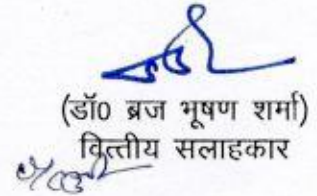 (डॉ0 ब्रज भूषण शर्मा)
वित्तीय सलाहकार